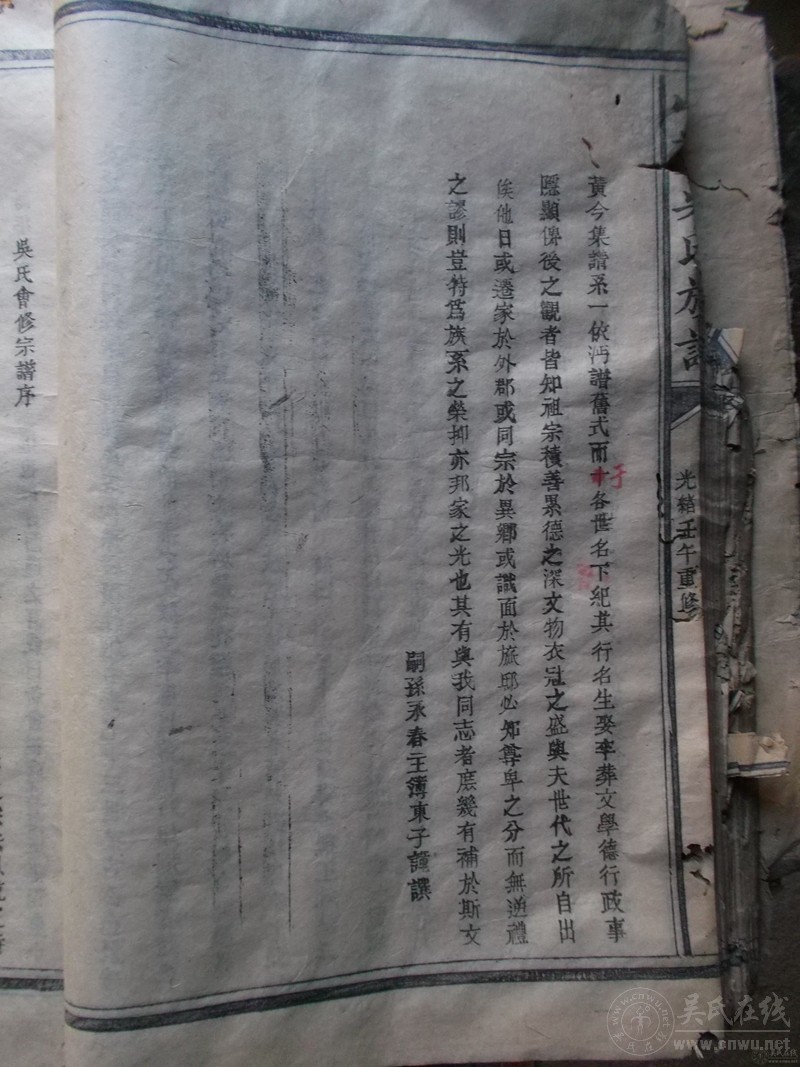 氏族譜
光緒壬午重修
黃今集譜系一依沔譜舊式而于各世名下紀其行名生娶卒葬文學德行政事
隱顯俾後之觀者皆知祖宗積善累德之深文物衣冠之盛與夫世代之所自出
俟他日或遷家於外郡或同宗於異鄉或識面於旅邸必知尊卑之分而無逾禮
之謬則豈特爲族系之榮抑亦邦家之光也其有與我同志者庶幾有補於斯文
嗣孫永春主簿東子謹譔
吳氏會修宗譜序
吴氏在线
www.cnwu.net